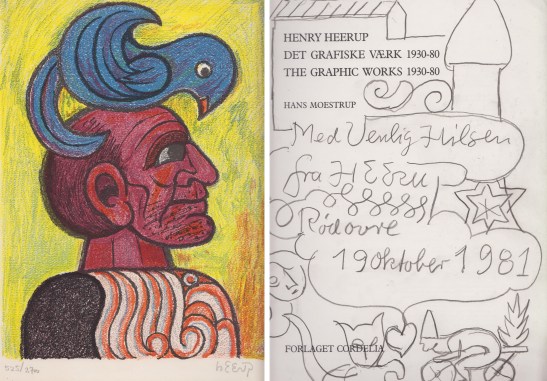 HEERUP
HENRY HEERUP
DET GRAFISKE VÆRK 1930-80
THE GRAPHIC WORKS 1930-80
HANS MOESTRUP
Med Venlig Hilsen
fra HEERUP
Rødovre
19 Oktober 1981
FORLAGET CORDELIA